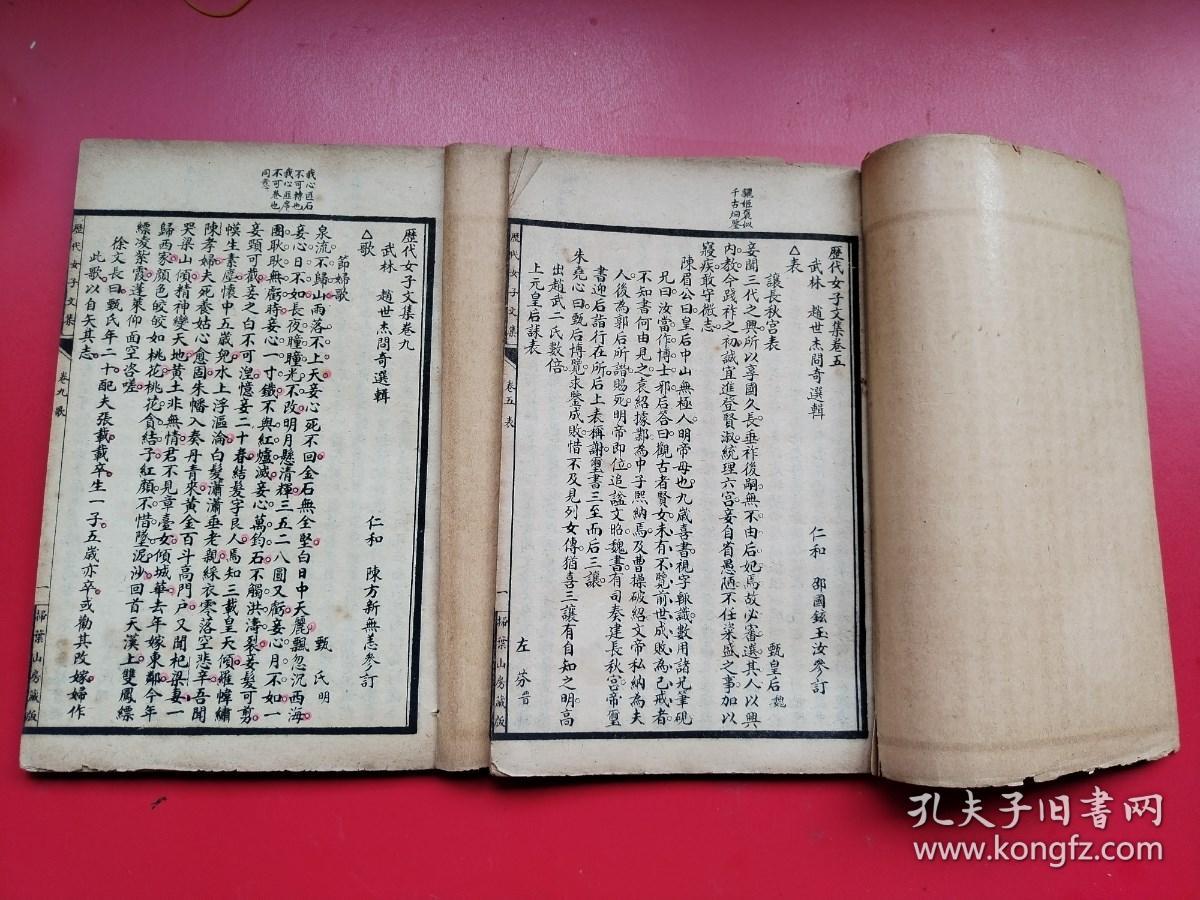 驪姬褒姒
千古炯鑒
歷代女子文集卷五
武林 趙世杰問奇選輯 仁和 郭國鉉玉汝參訂
△表
讓長秋宮表 甄皇后魏
妾聞三代之興所以享國久長垂祚後嗣無不由后妃焉故必審選其人以興
內教今踐祚之初誠宜進登賢淑統理六宮妾自省愚陋不任粢盛之事加以
寢疾敢守微志
陳眉公曰皇后中山無極人明帝母也九歲喜書視字輒識數用諸兄筆硯
兄曰汝當作博士邪后答曰觀古者賢女未有不覽前世成敗為己戒者
不知書何由見之袁紹據鄴為中子熙納焉及曹操破紹文帝私納為夫
人後為郭后所譖賜死明帝即位追謚文昭魏書有司奏建長秋宮帝璽
書迎后詣行在所后上表稱謝璽書三至而后三讓
朱堯心曰甄后博覽求鑒成敗惜不及見列女傳猶喜三讓有自知之明高
出趙武二氏數倍
上元皇后誄表 左芬晉
歷代女子文集
卷五 表
一
掃葉山房藏版
我心匪石
不可轉也
我心匪席
不可卷也
同意
歷代女子文集卷九
武林 趙世杰問奇選輯 仁和 陳方新無恙參訂
△歌
節婦歌 甄氏明
泉流不歸山雨落不上天妾心死不回金石無全堅白日中天麗飄忽沉西海
妾心日不如長夜瞳瞳光不改明月懸清輝三五二八圓又虧妾心月不如一
團耿耿無虧時妾心一寸鐵不與紅爐滅妾心萬鈞石不觸洪濤裂妾髮可剪
妾頸可截妾之白不可湟憶妾二十春結髮字良人焉知三載皇天傾羅幃繡
幙生素塵懷中五歲兒水上浮漚淪白髮瀟瀟垂老親綵衣零落空悲辛吾聞
陳孝婦夫死養姑心愈固朱幡入奏丹青來黃金百斗高門戶又聞杞梁妻一
哭梁山傾精神變天地黃土非無情君不見章臺女傾城華去年嫁東鄰今年
歸西家顏色皎皎如桃花桃花貪結子紅顏不惜墮泥沙回首天漢上雙鳳縹
縹凌紫霞蓬萊仰面空咨嗟
徐文長曰甄氏年二十配夫張載載卒生一子五歲亦卒或勸其改嫁婦作
此歌以自矢其志
歷代女子文集
卷九 歌
一
掃葉山房藏版
孔夫子旧书网
www.kongfz.com